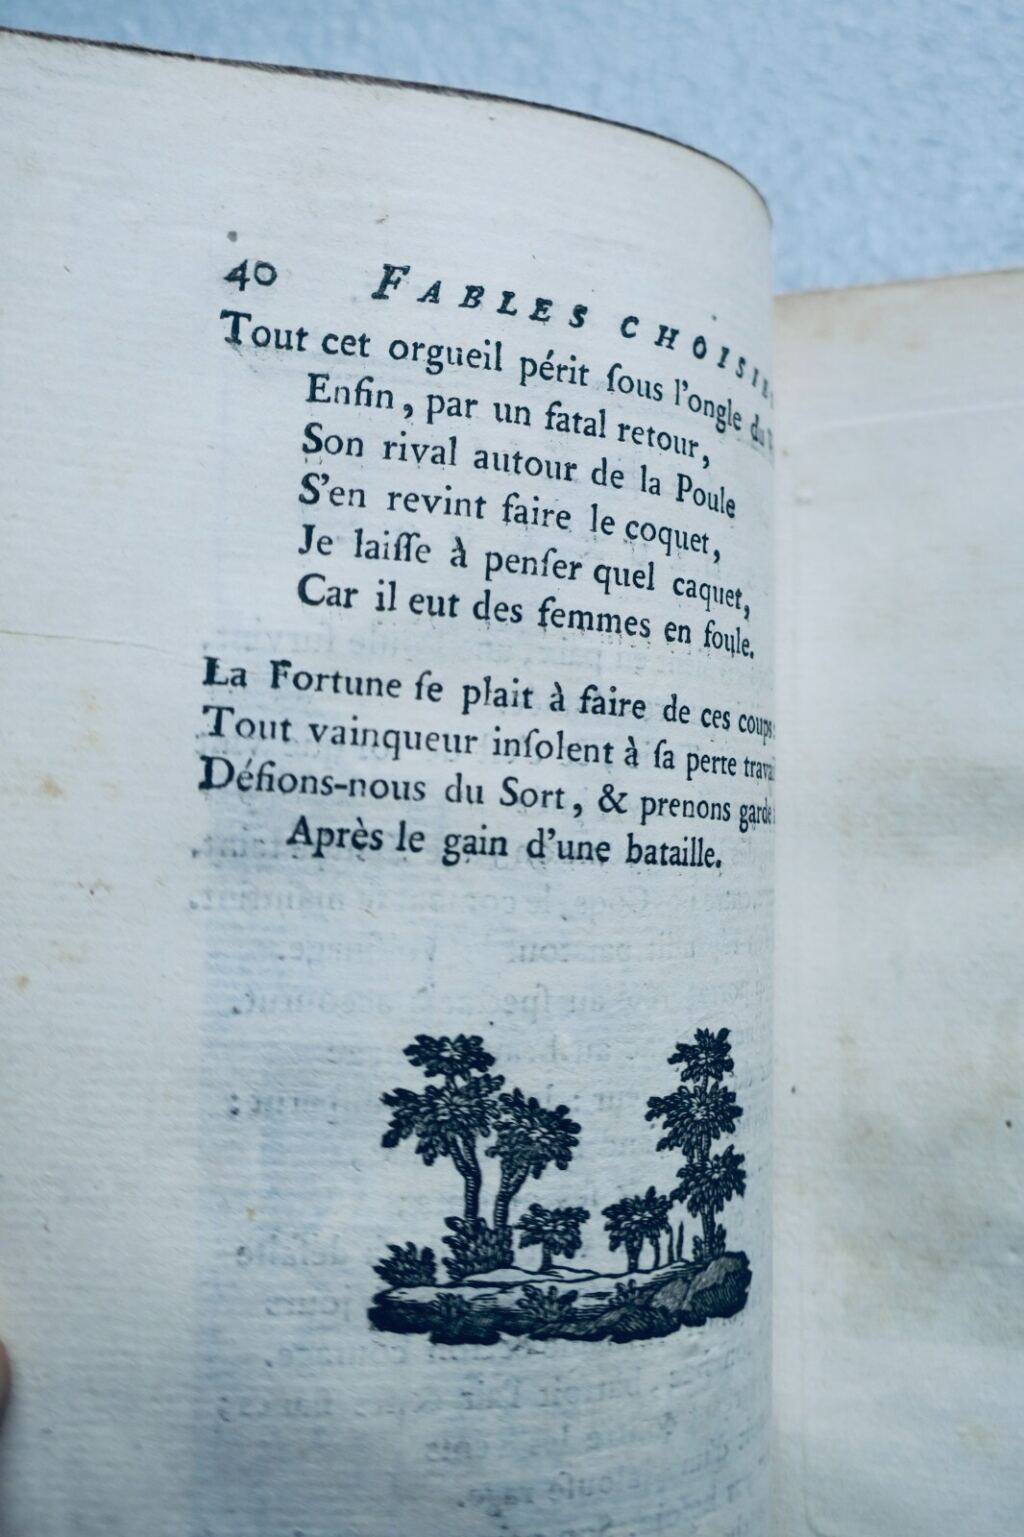 40 FABLES CHOISIE
Tout cet orgueil périt ſous l'ongle du
Enfin, par un fatal retour,
Son rival autour de la Poule
S'en revint faire le coquet,
Je laiſſe à penſer quel caquet,
Car il eut des femmes en foule.
La Fortune ſe plait à faire de ces coups
Tout vainqueur inſolent à ſa perte trava
Défions-nous du Sort, & prenons garde
Après le gain d'une bataille.